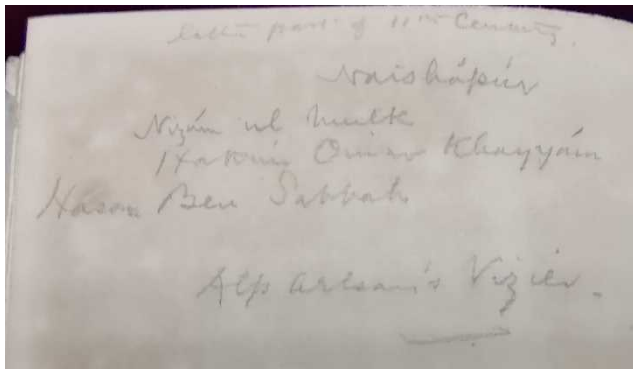 latter part of 11th Century.
Naishápúr
Nizám ul Mulk
Hakim Omar Khayyám
Hasan Ben Sabbah
Alp Arlsan's Vizier.